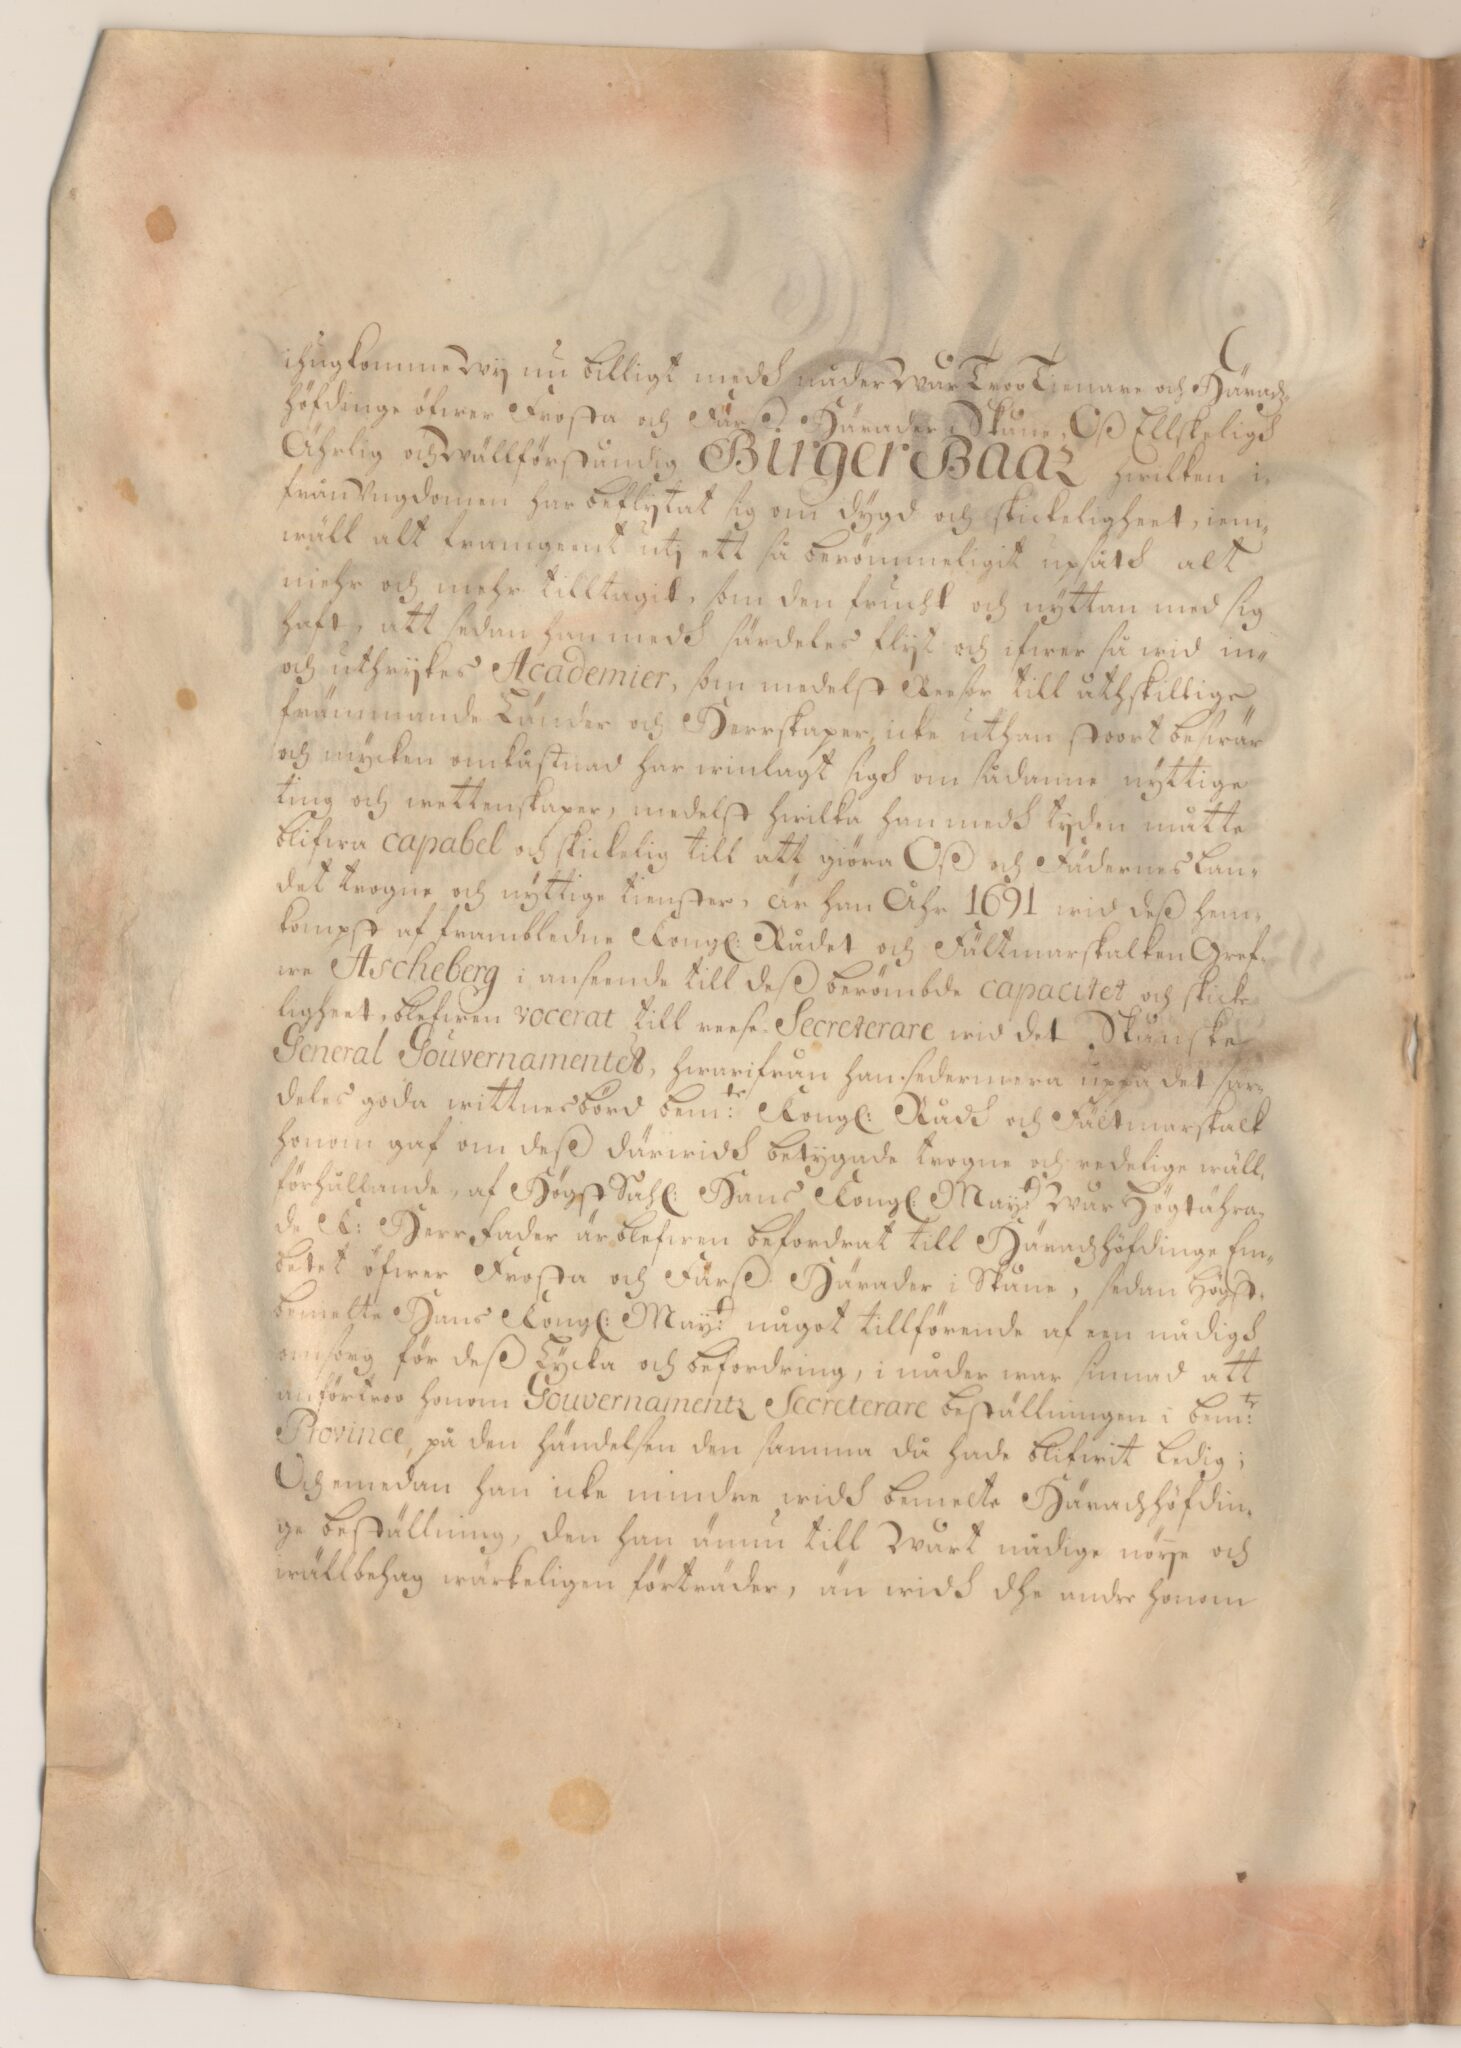 ihugkomme Wy nu billigt medh nåder Wår Troo Tienare och Häradz-
höfdinge öfwer Frosta och Färs Härader i Skåne, Oß Ellskeligh
Ährlig och Wällförståndig Birger Baaz hwilken i-
från Ungdomen har beflytat sig om dygd och skickeligheet, iem-
wäll alt framgeent uti ett så berömmeligit upsåth alt
mehr och mehr tilltagit, som den frucht och nyttan med sig
haft, att sedan han medh särdeles flyt och ifwer så wid in-
och uthrykes Academier, som medelst Reesor till åthskillige
främmande Länder och Herrskaper, icke uthan stoort beswär
och mycken omkåstnad har winlagt sigh om sådanne nyttige
ting och wettenskaper, medelst hwilka han medh tyden måtte
blifwa capabel och skickelig till att giöra Oß och Fäderneslan-
det trogne och nyttige tienster, är han Åhr 1691 wid deß hem-
kompst af frambledne Kongl: Rådet och Fältmarskalken Gref-
we Ascheberg i anseende till deß berömbde capacitet och skicke-
ligheet, blefwen vocerat till reese-Secreterare wid det Skånske
General Gouvernamentet, hwarifrån han sedermera uppå det sär-
deles goda wittnesbörd bem:te Kongl: Rådh och Fältmarskalk
honom gaf om deß därwidh betygade trogne och redelige wäll-
förhållande, af Högst Sahl: Hans Kongl: May:tt Wår Högtährа-
de K: Herr Fader är blefwen befordrat till Häradzhöfdinge Em-
betet öfwer Frosta och Färs Härader i Skåne, sedan Högst-
bemelte Hans Kongl: May:tt något tillförende af een nådigh
omsorg för deß Lycka och befordring, i nåder war sinnad att
anförtroo honom Gouvernamentz Secreterare beställningen i bem:te
Province, på den händelsen den samma då hade blifwit Ledig;
Och emedan han icke mindre widh bemelte Häradzhöfdin-
ge beställning, den han ännu till Wårt nådige nöije och
wällbehag wärkeligen förträder, än widh dhe andre honom